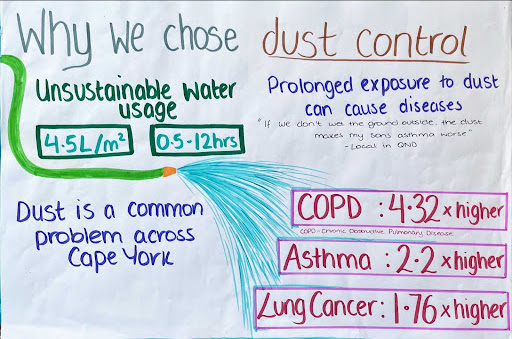 Why we chose dust control
Unsustainable water
usage
4.5L/m²
0.5-12hrs
Prolonged exposure to dust
can cause diseases
"If we don't wet the ground outside, the dust
makes my sons asthma worse"
- Local in QND
Dust is a common
problem across
Cape York
COPD : 4.32 x higher
COPD - Chronic Obstructive Pulmonary Disease
Asthma : 2.2 x higher
Lung Cancer : 1.76 x higher